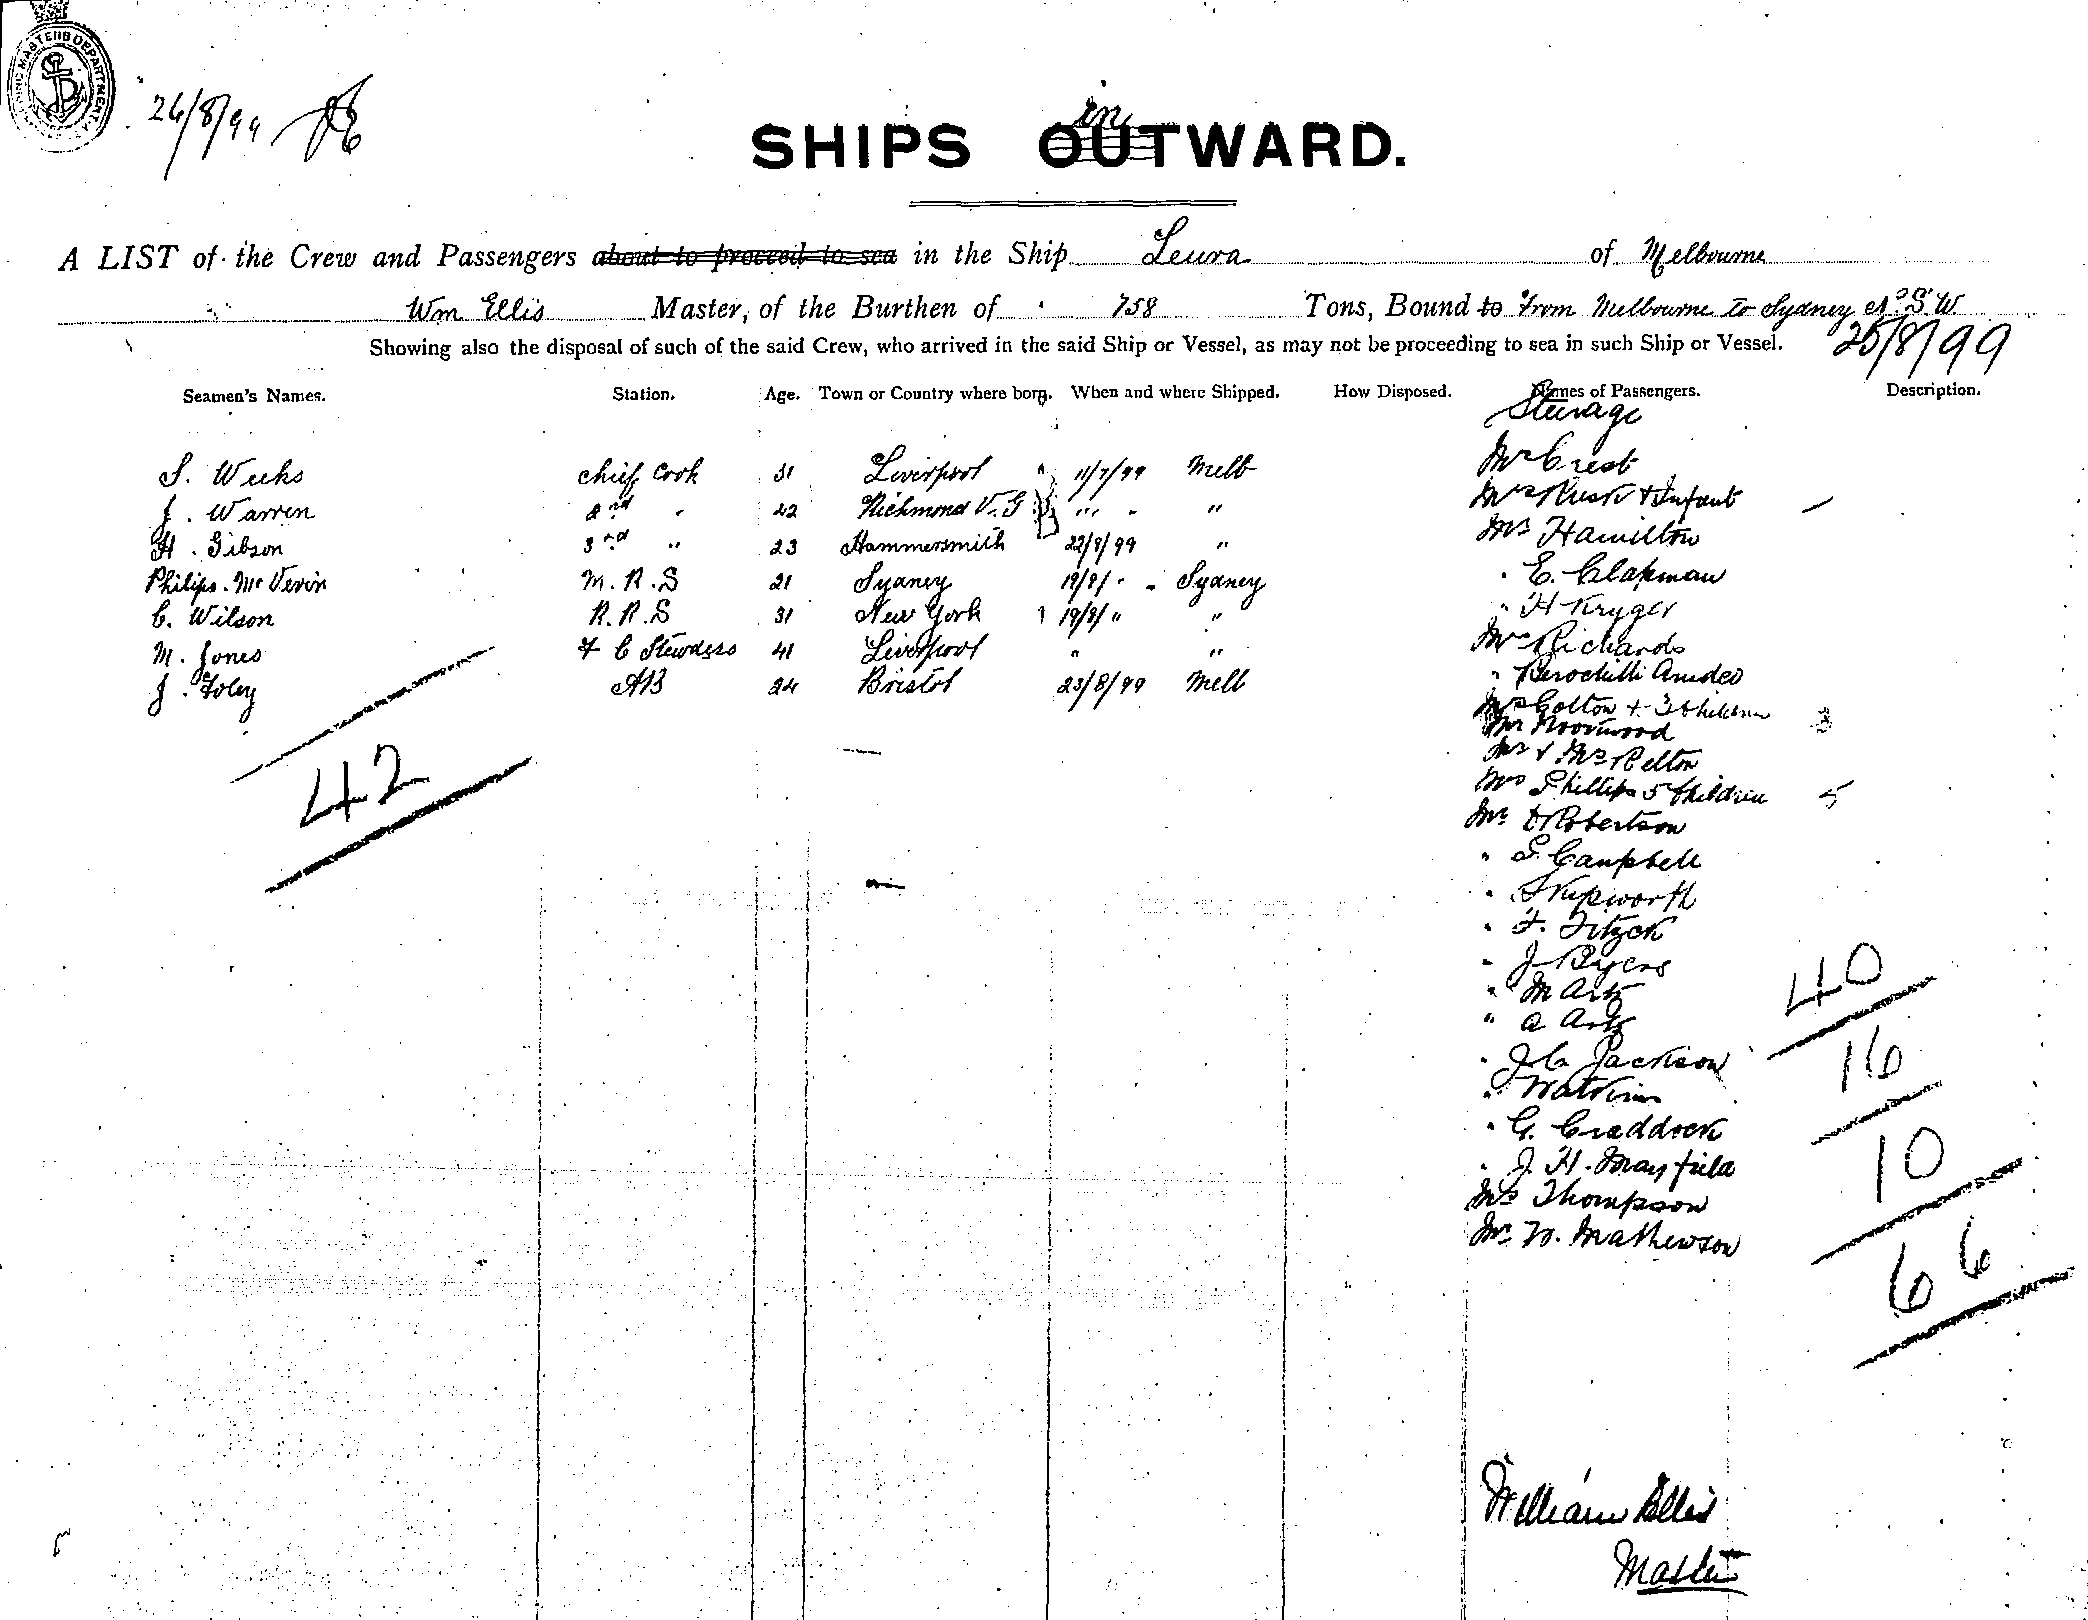 26/8/99
SHIPS OUTWARD.
in
A LIST of the Crew and Passengers about to proceed to sea in the Ship Leura of Melbourne
Wm Ellis Master, of the Burthen of 758 Tons, Bound to From Melbourne to Sydney N.S.W
25/8/99
Showing also the disposal of such of the said Crew, who arrived in the said Ship or Vessel, as may not be proceeding to sea in such Ship or Vessel.
Seamen's Names. Station. Age. Town or Country where born. When and where Shipped. How Disposed. Names of Passengers. Description.
Steerage
S. Weeks chief Cook 31 Liverpool 11/7/99 Melb
J. Warren 2nd " 42 Richmond V.G " " "
H. Gibson 3rd " 23 Hammersmith 22/8/99 "
Philips. McVerin M.R.S 21 Sydney 19/8/- Sydney
C. Wilson R.R.S 31 New York 19/8/" "
M. Jones F C Stewdess 41 Liverpool " "
J. Foley AB 24 Bristol 23/8/99 Melb
42
Mr Crest
Mrs Rusk + Infant
Mr Hamilton
" E. Clapman
" H Kryger
Mr Richards
" Amedeo
Mrs Cotton + 3 Children 3
Mr
Mr & Mrs Relton
Mrs Phillips 5 Children 5
Mr D Robertson
" S. Campbell
"
" F. Fitzck
" J Byers
" M Artz
" A Artz
" J C Jackson
" Watkins
" G. Craddock
" J. H. Mayfield
Mrs Thompson
Mr W. Mathewson
40
16
10
66
William Ellis
Master